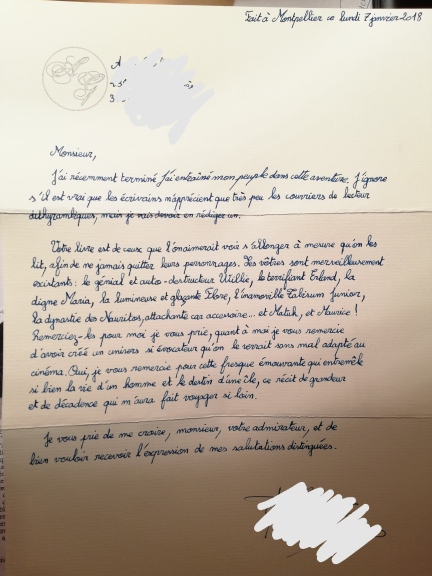 Fait à Montpellier ce lundi 7 janvier 2018
Monsieur,
J'ai récemment terminé J'ai entraîné mon peuple dans cette aventure. J'ignore
s'il est vrai que les écrivains n'apprécient que très peu les courriers de lecteur
dithyrambiques, mais je vais devoir en rédiger un.
Votre livre est de ceux que l'on aimerait voir s'allonger à mesure qu'on les
lit, afin de ne jamais quitter leurs personnages. Les vôtres sont merveilleusement
existants : le génial et auto-destructeur Willie, le terrifiant, la
digne Maria, la lumineuse et glaçante Flore, l'inamovible Junior,
la dynastie des attachante car accessoire... et Matik, et Maurice !
Remerciez-les pour moi je vous prie, quant à moi je vous remercie
d'avoir créé un univers si évocateur qu'on le verrait sans mal adapté au
cinéma. Oui, je vous remercie pour cette fresque émouvante qui entremêle
si bien la vie d'un homme et le destin d'une île, ce récit de grandeur
et de décadence qui m'aura fait voyager si loin.
Je vous prie de me croire, monsieur, votre admirateur, et de
bien vouloir recevoir l'expression de mes salutations distinguées.